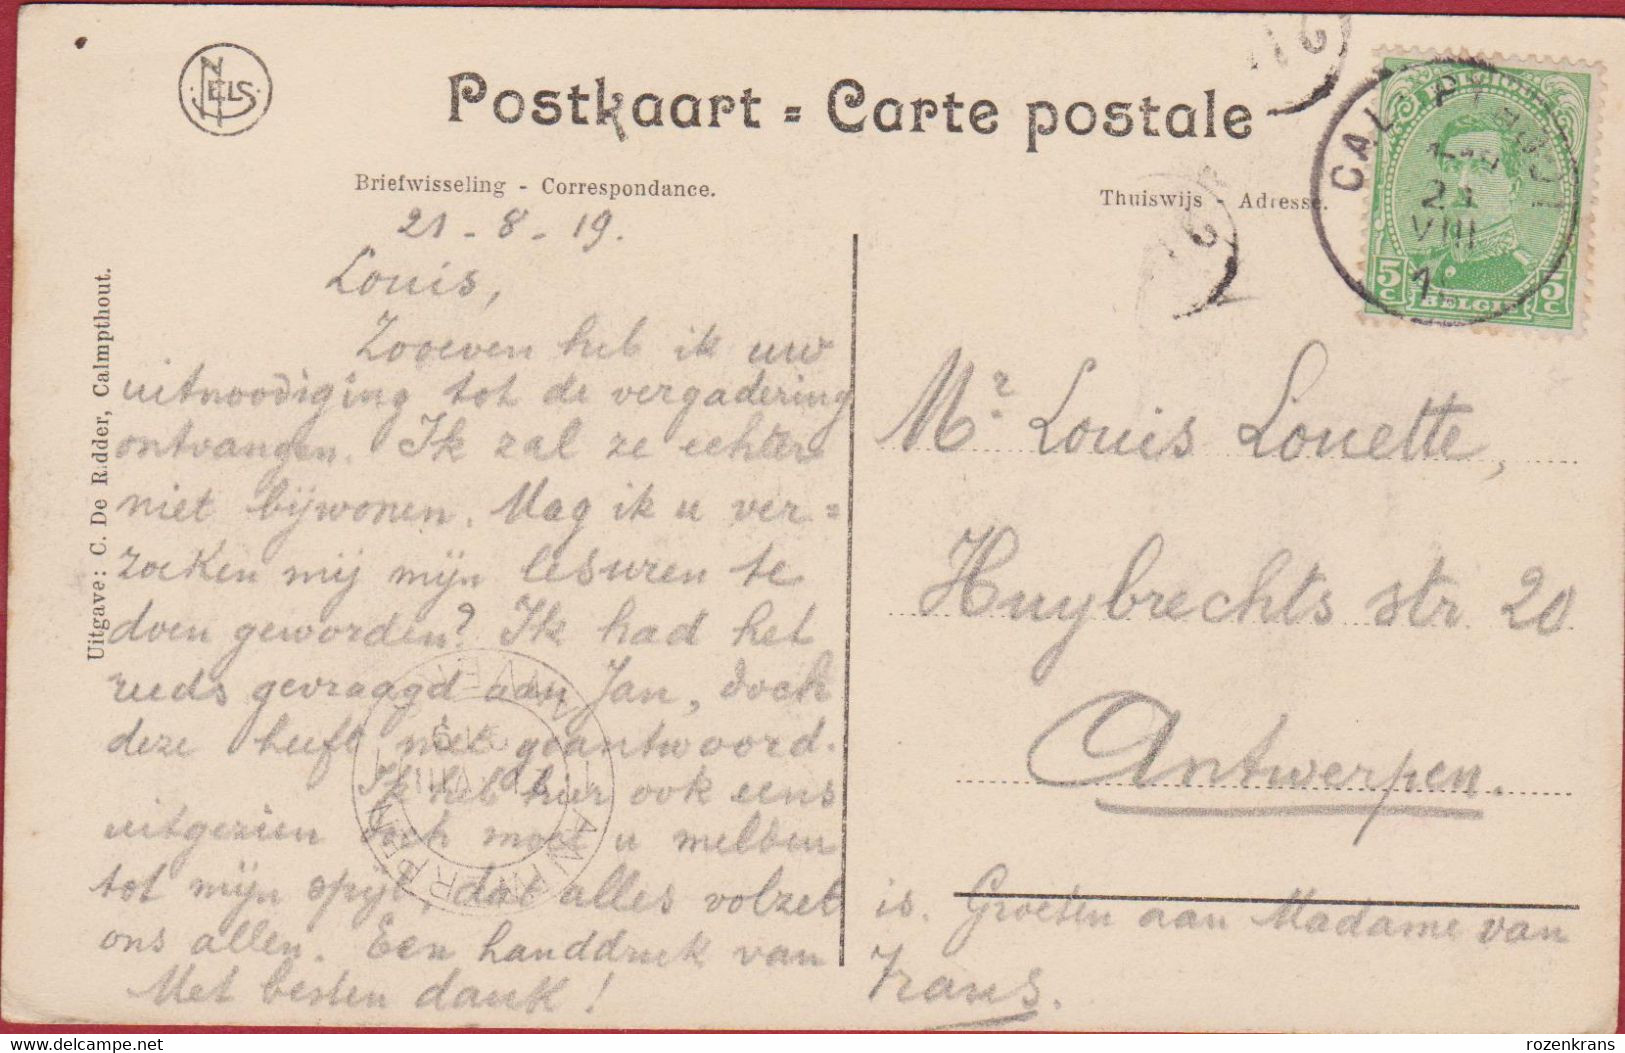 NELS
Postkaart = Carte postale
Briefwisseling - Correspondance.
Thuiswijs - Adresse.
VIII
5c BELGIË 5c
Uitgave: C. De Ridder, Calmpthout.
21 - 8 - 19.
Louis,
Zooeven heb ik uw
uitnoodiging tot de vergadering
ontvangen. Ik zal ze echter
niet bijwonen. Mag ik u ver=
zoeken mij mijn lesuren te
doen geworden? Ik had het
reeds gevraagd aan Jan, doch
deze heeft niet geantwoord.
Ik heb hier ook eens
uitgezien doch moet u melden
tot mijn spijt, dat alles volzet
is. Groeten aan Madame van
ons allen. Een handdruk van
Frans.
Met besten dank!
Mr. Louis Louette,
Huybrechts str 20
Antwerpen.
rozenkrans